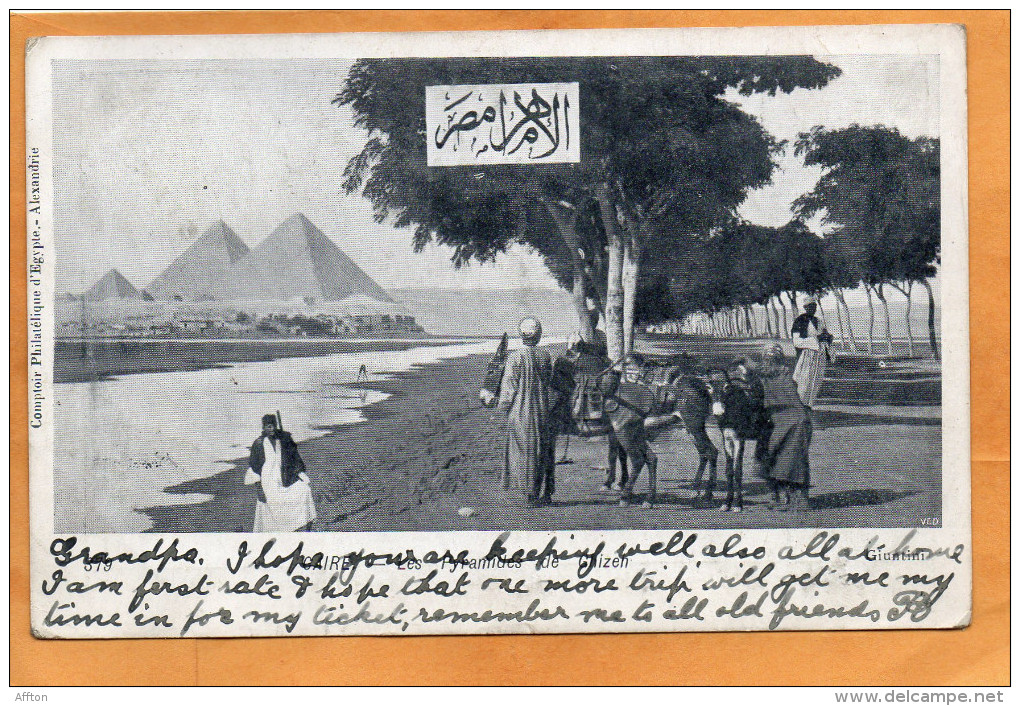 الاهرام مصر
Comptoir Philatélique d'Egypte.- Alexandrie
VED
579 CAIRE Les Pyramides de Ghizeh Giuntini
Grandpa. I hope your are keeping well also all at home
I am ferst rate & hope that one more trip will get me my
time in for my ticket, remember me to all old friends
Affton
delcampe.net